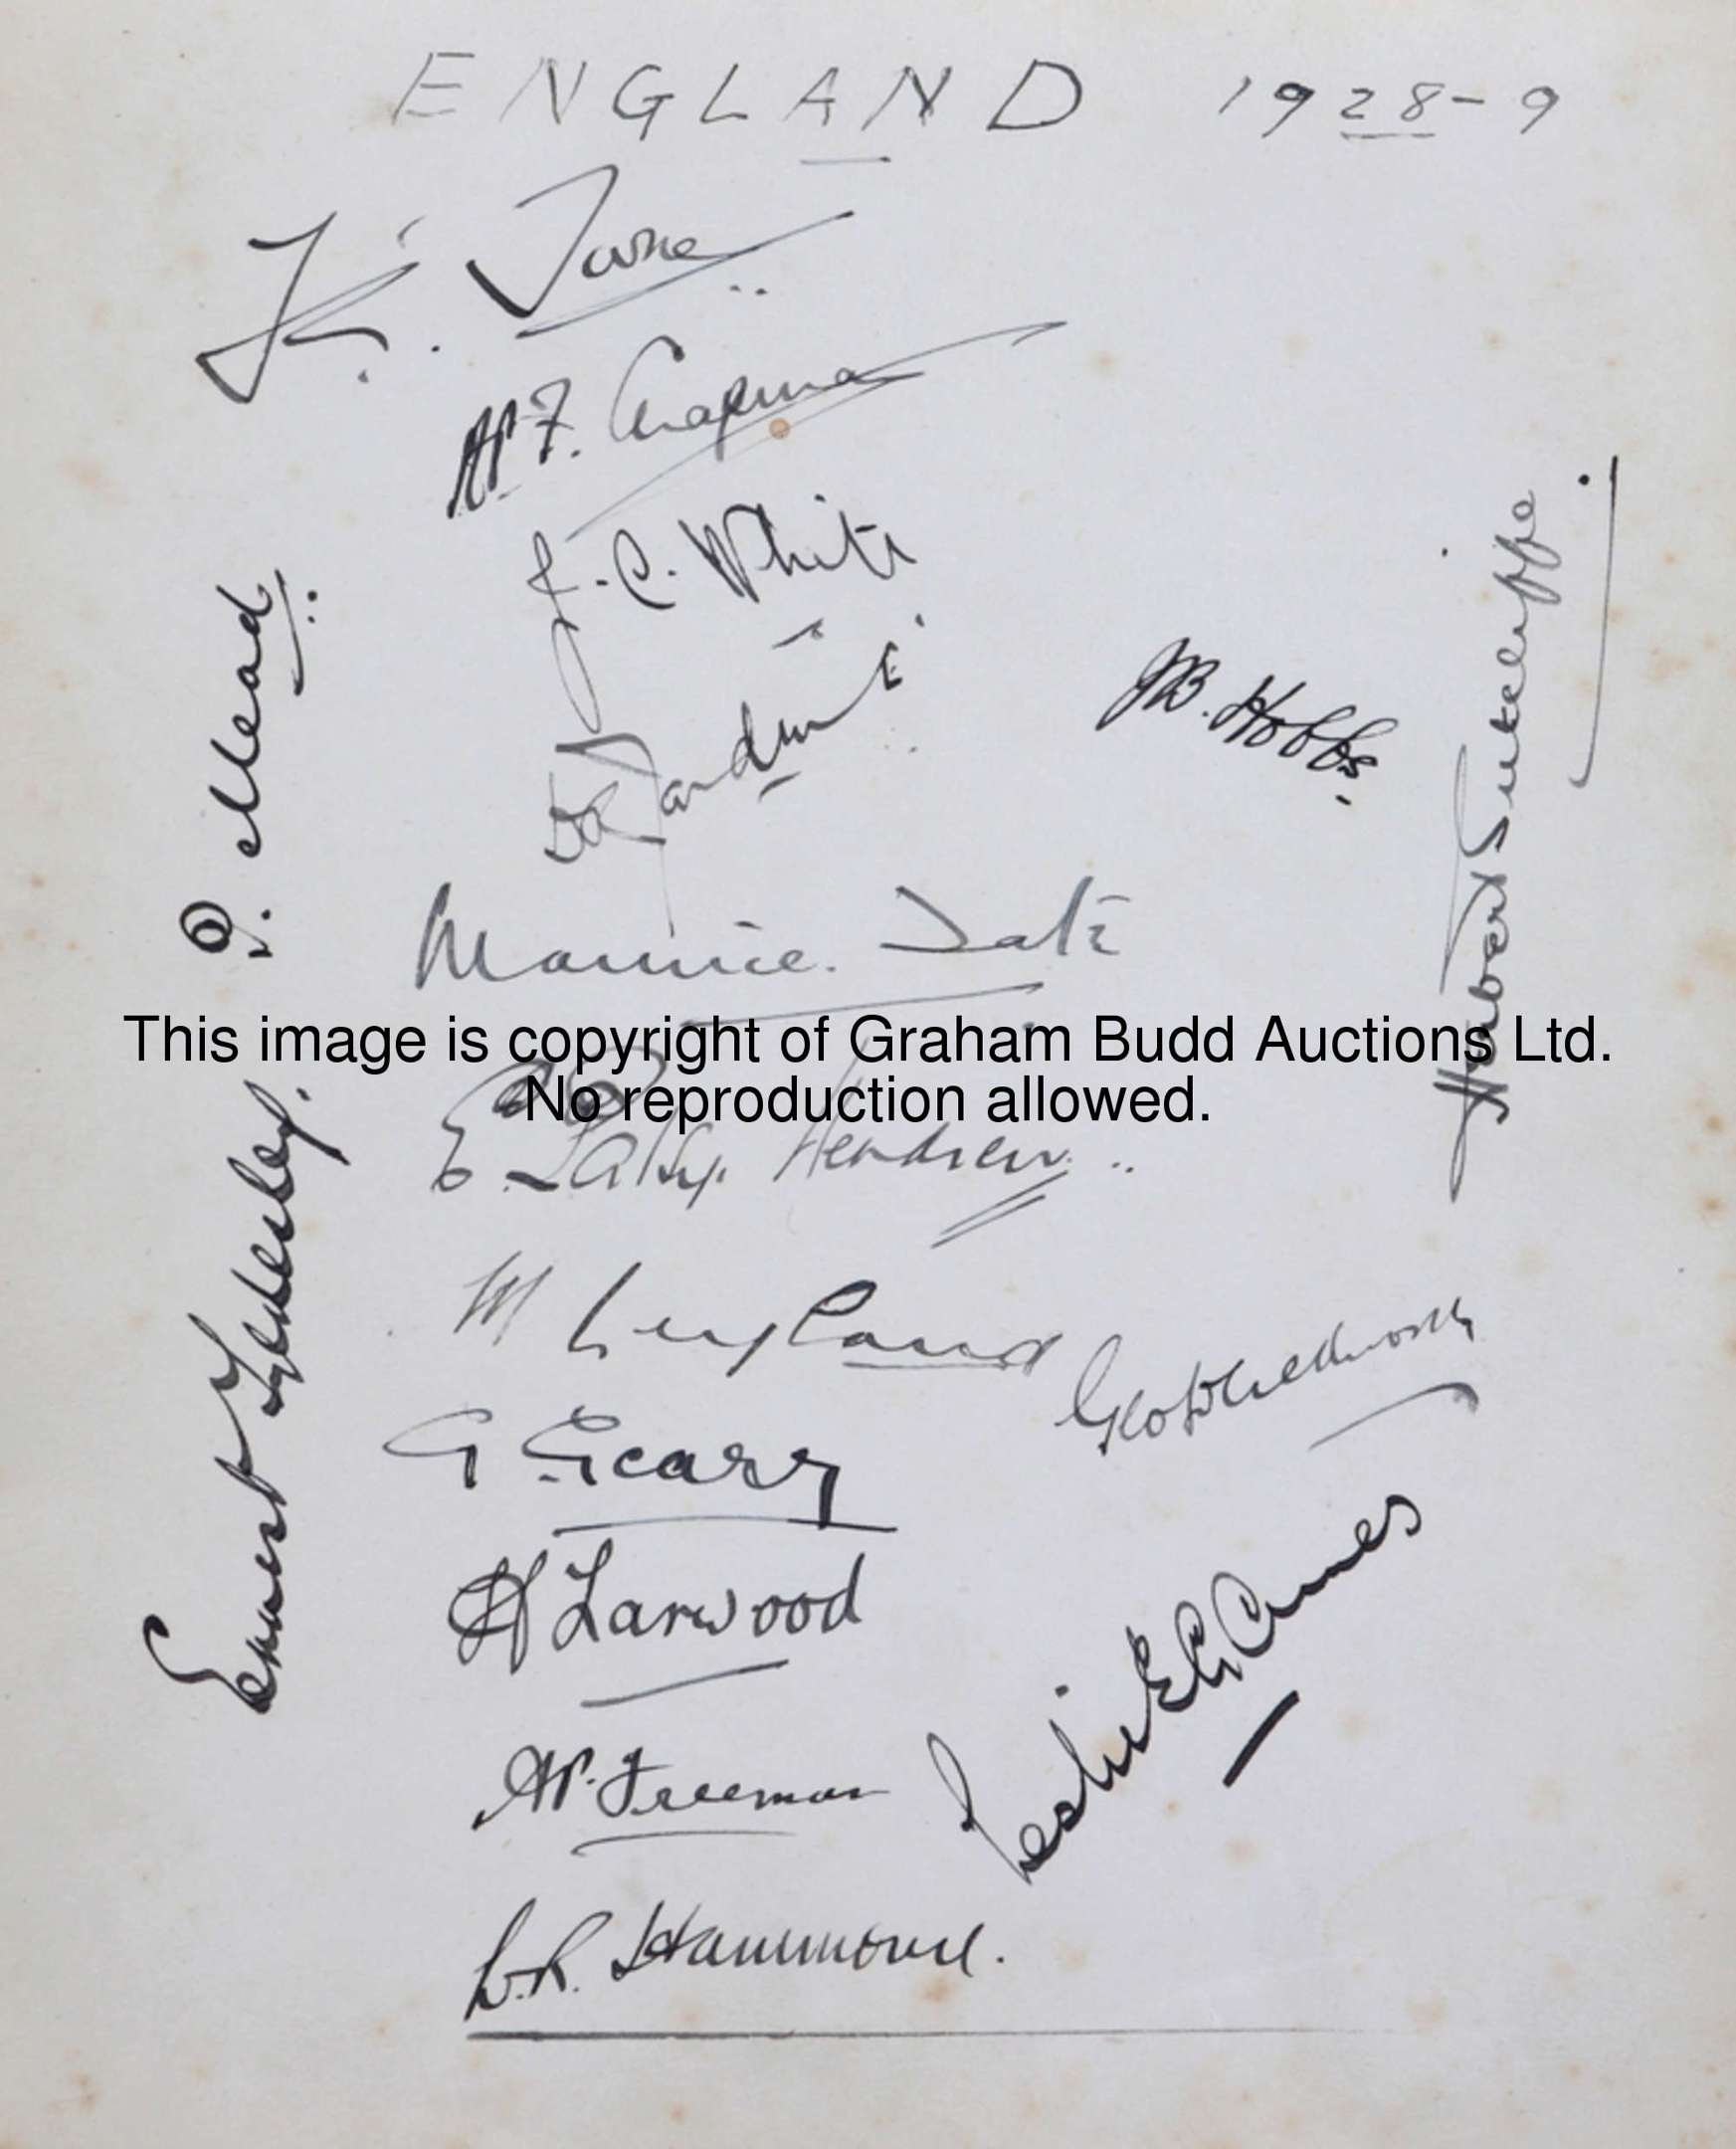 ENGLAND 1928-9
F. Toone
A.P.F. Chapman
J.C. White
D R Jardine
J B. Hobbs.
Herbert Sutcliffe
P. Mead
Maurice. Tate
This image is copyright of Graham Budd Auctions Ltd.
No reproduction allowed.
E. "Patsy" Hendren
M Leyland
Geo Duckworth
Ernest Tyldesley.
G. Geary
H Larwood
A P. Freeman
Leslie E G Ames
W.R. Hammond.